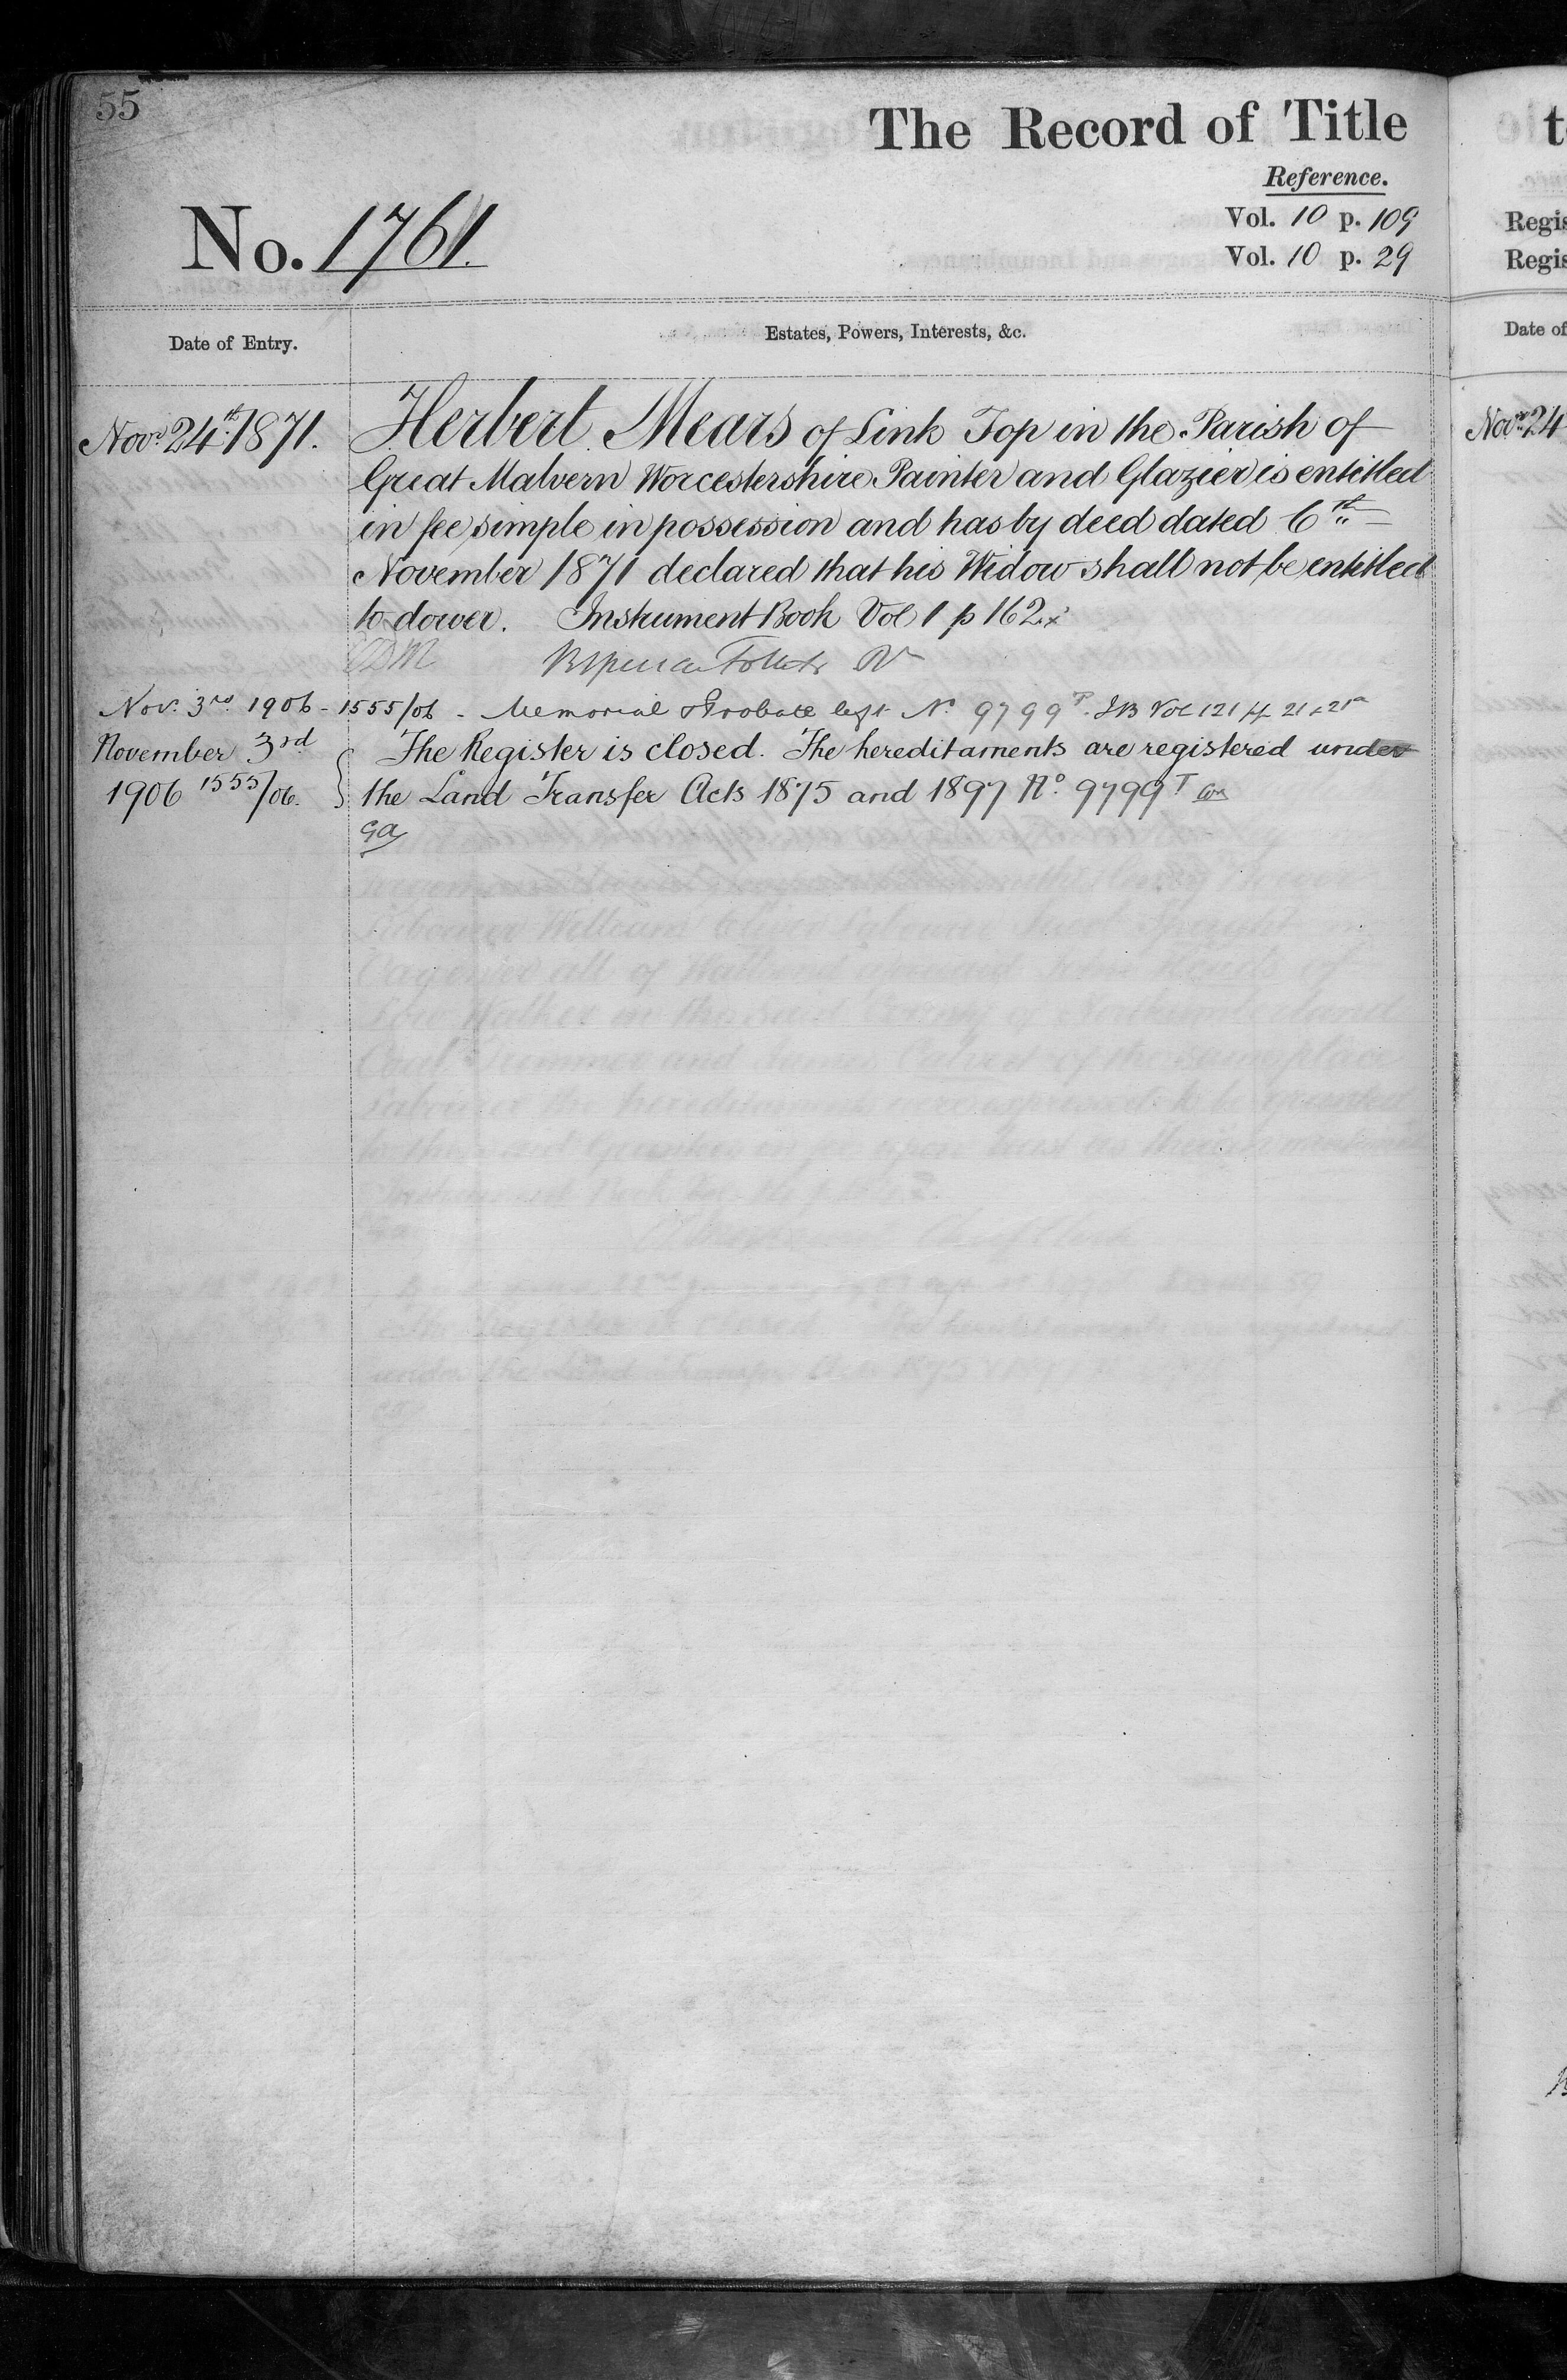 55
The Record of Title
Reference.
No. 1761.
Vol. 10 p. 109
Vol. 10 p. 29
Date of Entry.
Estates, Powers, Interests, &c.
Novr. 24th. 1871.
Herbert Mears of Link Top in the Parish of
Great Malvern Worcestershire Painter and Glazier is entitled
in fee simple in possession and has by deed dated 6th
November 1871 declared that his Widow shall not be entitled
to dower. Instrument Book Vol 1 p 162.
Nov. 3rd. 1906 - 1555/06 - Memorial & Probate left No. 9799 T. IB Vol 121 ff 21 & 21a
November 3rd
1906 1555/06.
The Register is closed. The hereditaments are registered under
the Land Transfer Acts 1875 and 1897 No. 9799 T
Ga
t
Regis
Regis
Date of
Novr. 24